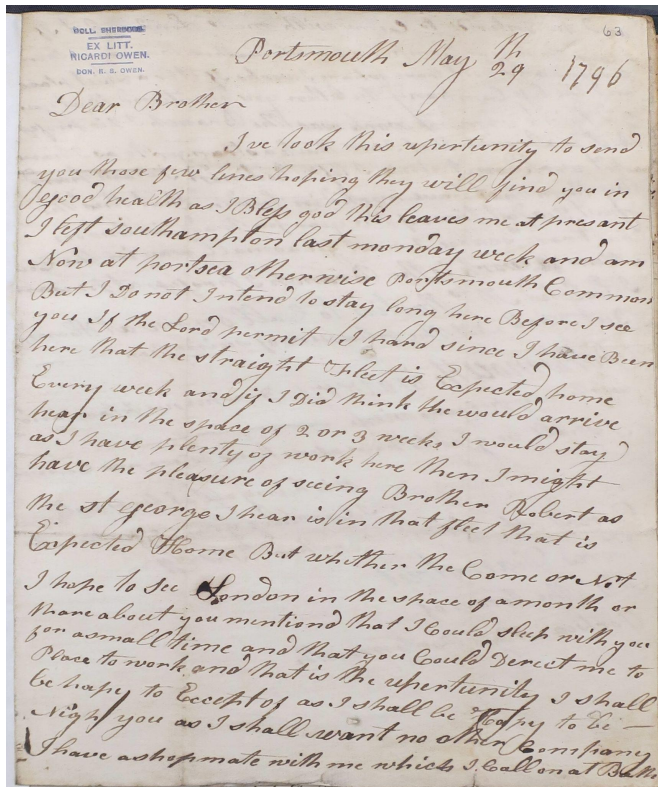 63
COLL. SHERBORN.
EX LITT.
RICARDI OWEN.
DON. R. S. OWEN.
Portsmouth May 29th 1796
Dear Brother
I've took this upertunity to send
you those few lines hoping they will find you in
good health as I Bless god this leaves me at presant
I left southampton last monday week and am
Now at portsea otherwise Portsmouth Common
But I Do not Intend to stay long here Before I see
you If the Lord permit I hard since I have Been
here that the straight Fleet is Expected home
Every week and if I Did think the would arrive
hear in the space of 2 or 3 weeks I would stay
as I have plenty of work here then I might
have the pleasure of seeing Brother Robert as
the st george I hear is in that fleet that is
Expected Home But whether the Come or Not
I hope to See London in the space of a month or
thare about you mentiond that I Could sleep with you
for a small time and that you Could Derect me to
Place to work and that is the upertunity I shall
be hapy to Eccept of as I shall be Hapy to be
Nigh you as I shall want no other Company
I have a shopmate with me which I Call on at